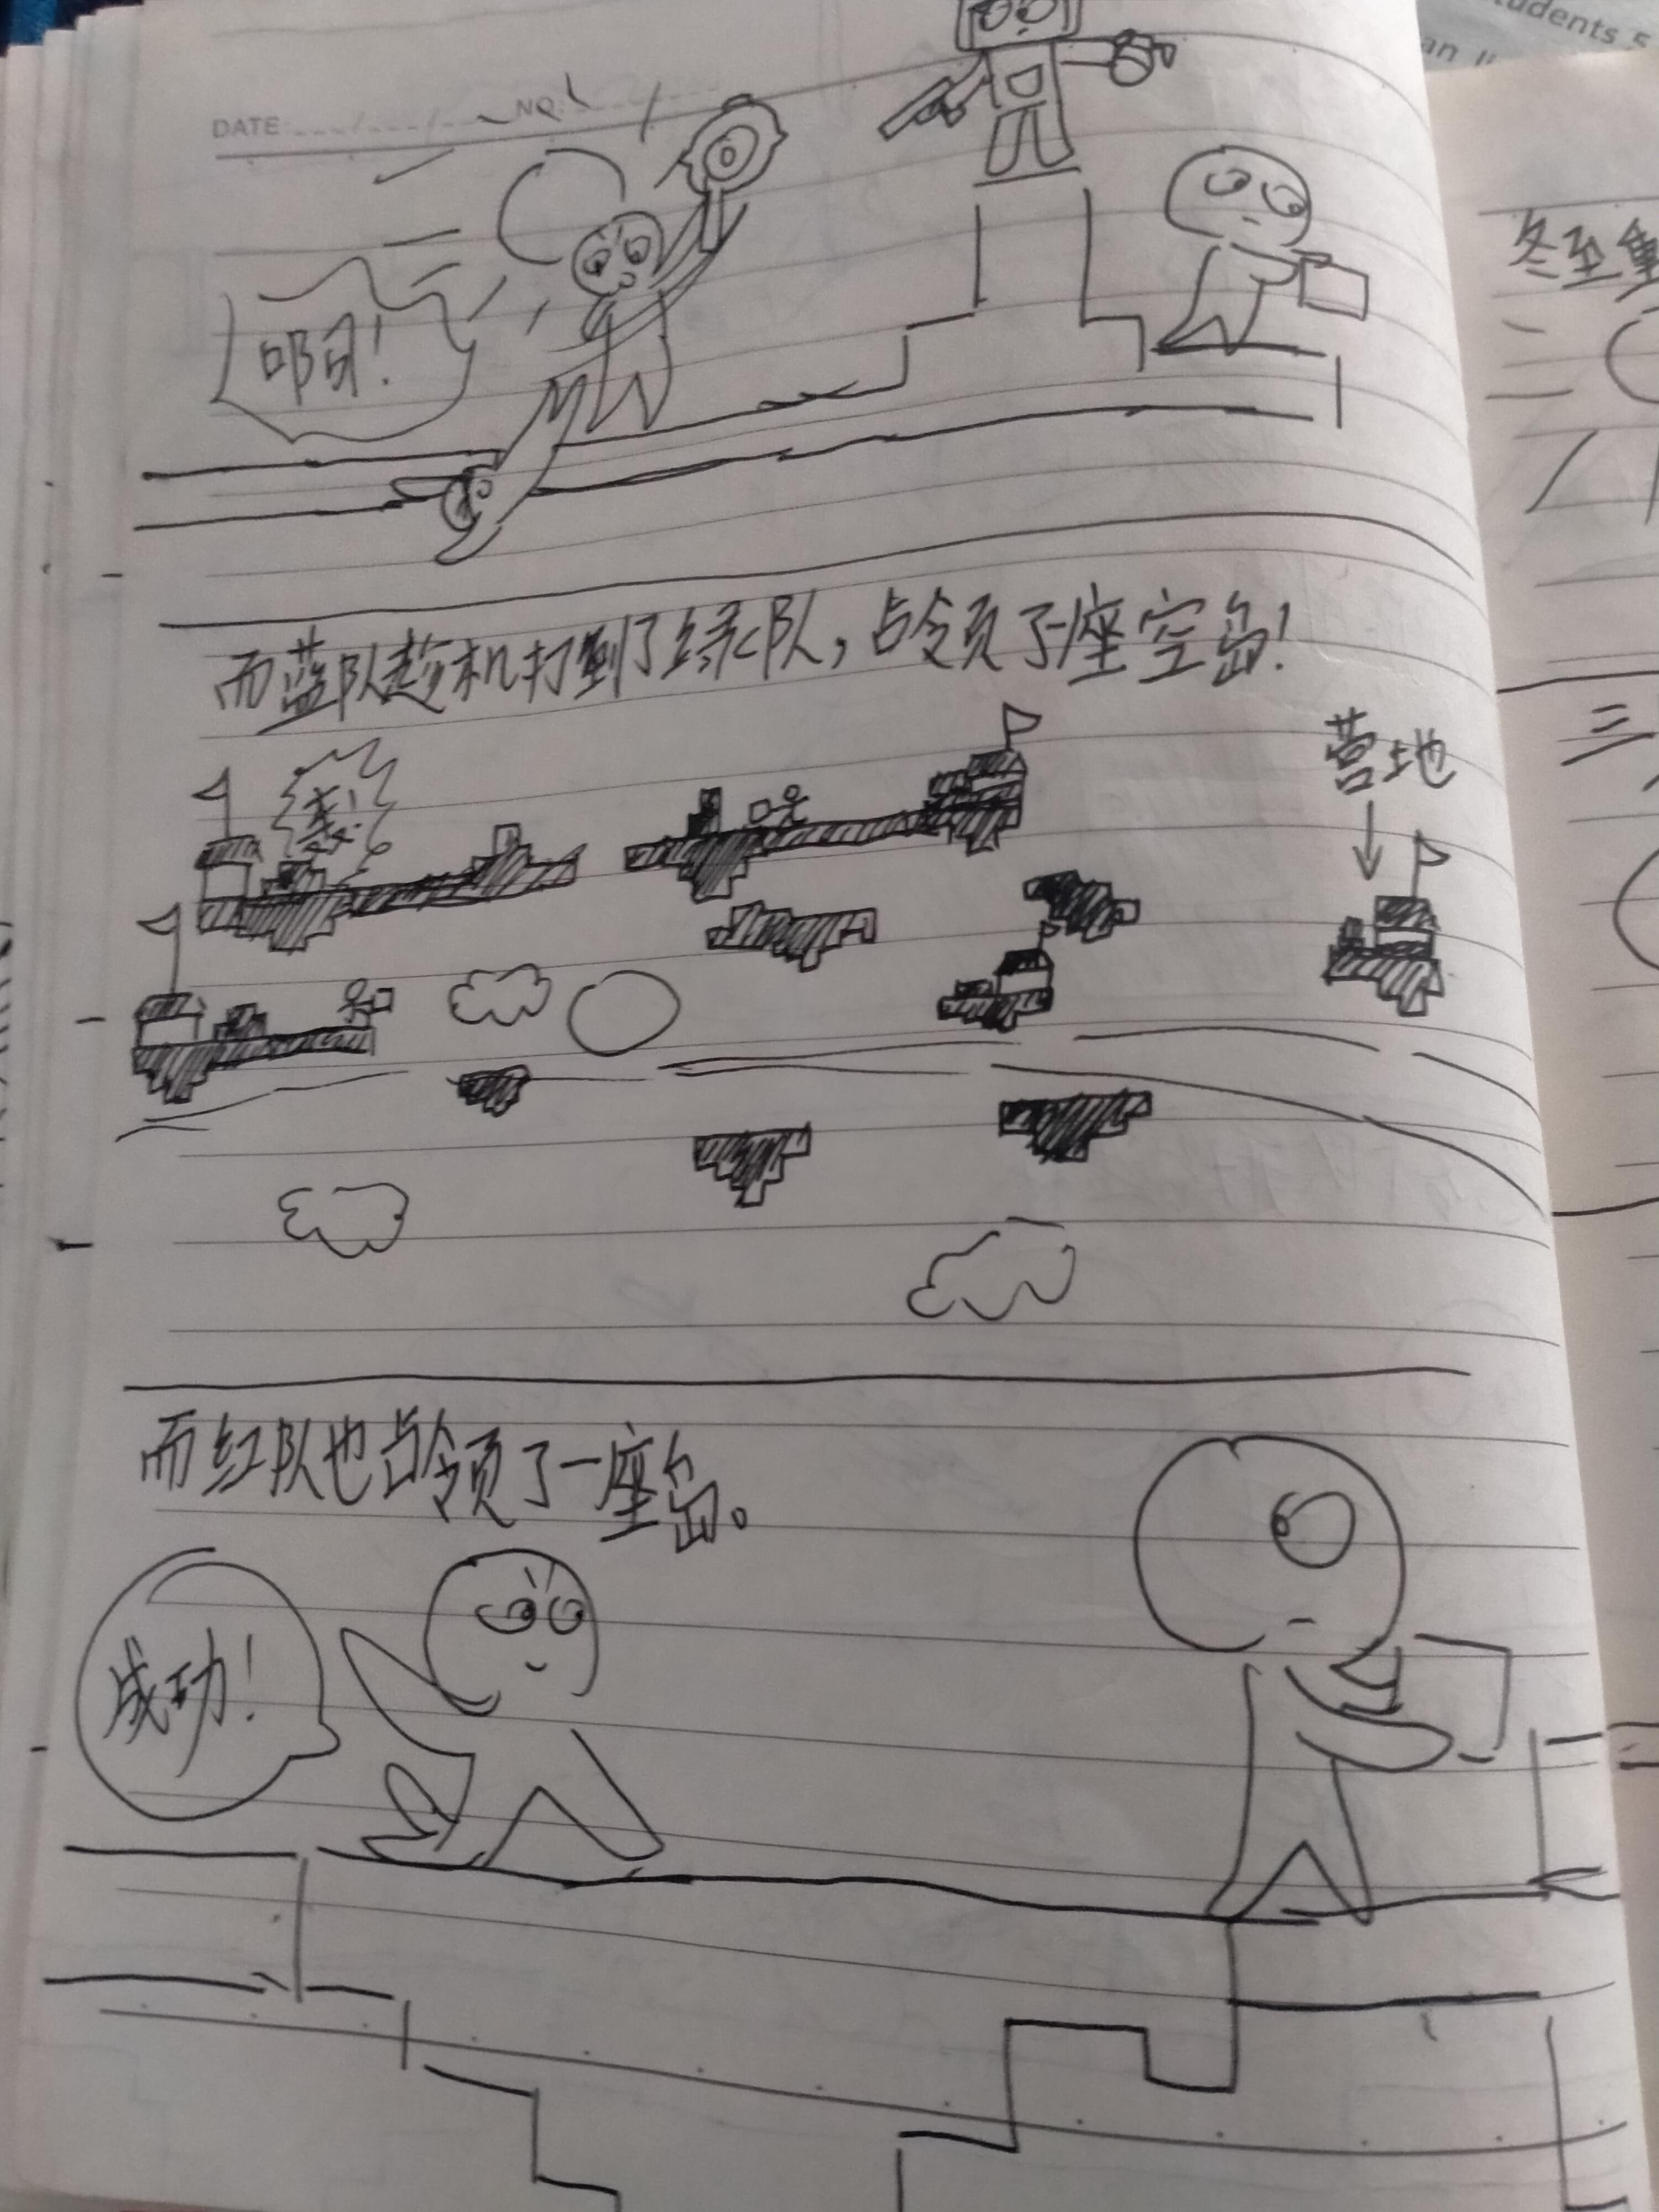 DATE: NO:
啊!
而蓝队趁机打到了绿队,占领了一座空岛!
营地
而红队也占领了一座岛。
成功!
冬至
tudents 5
an li